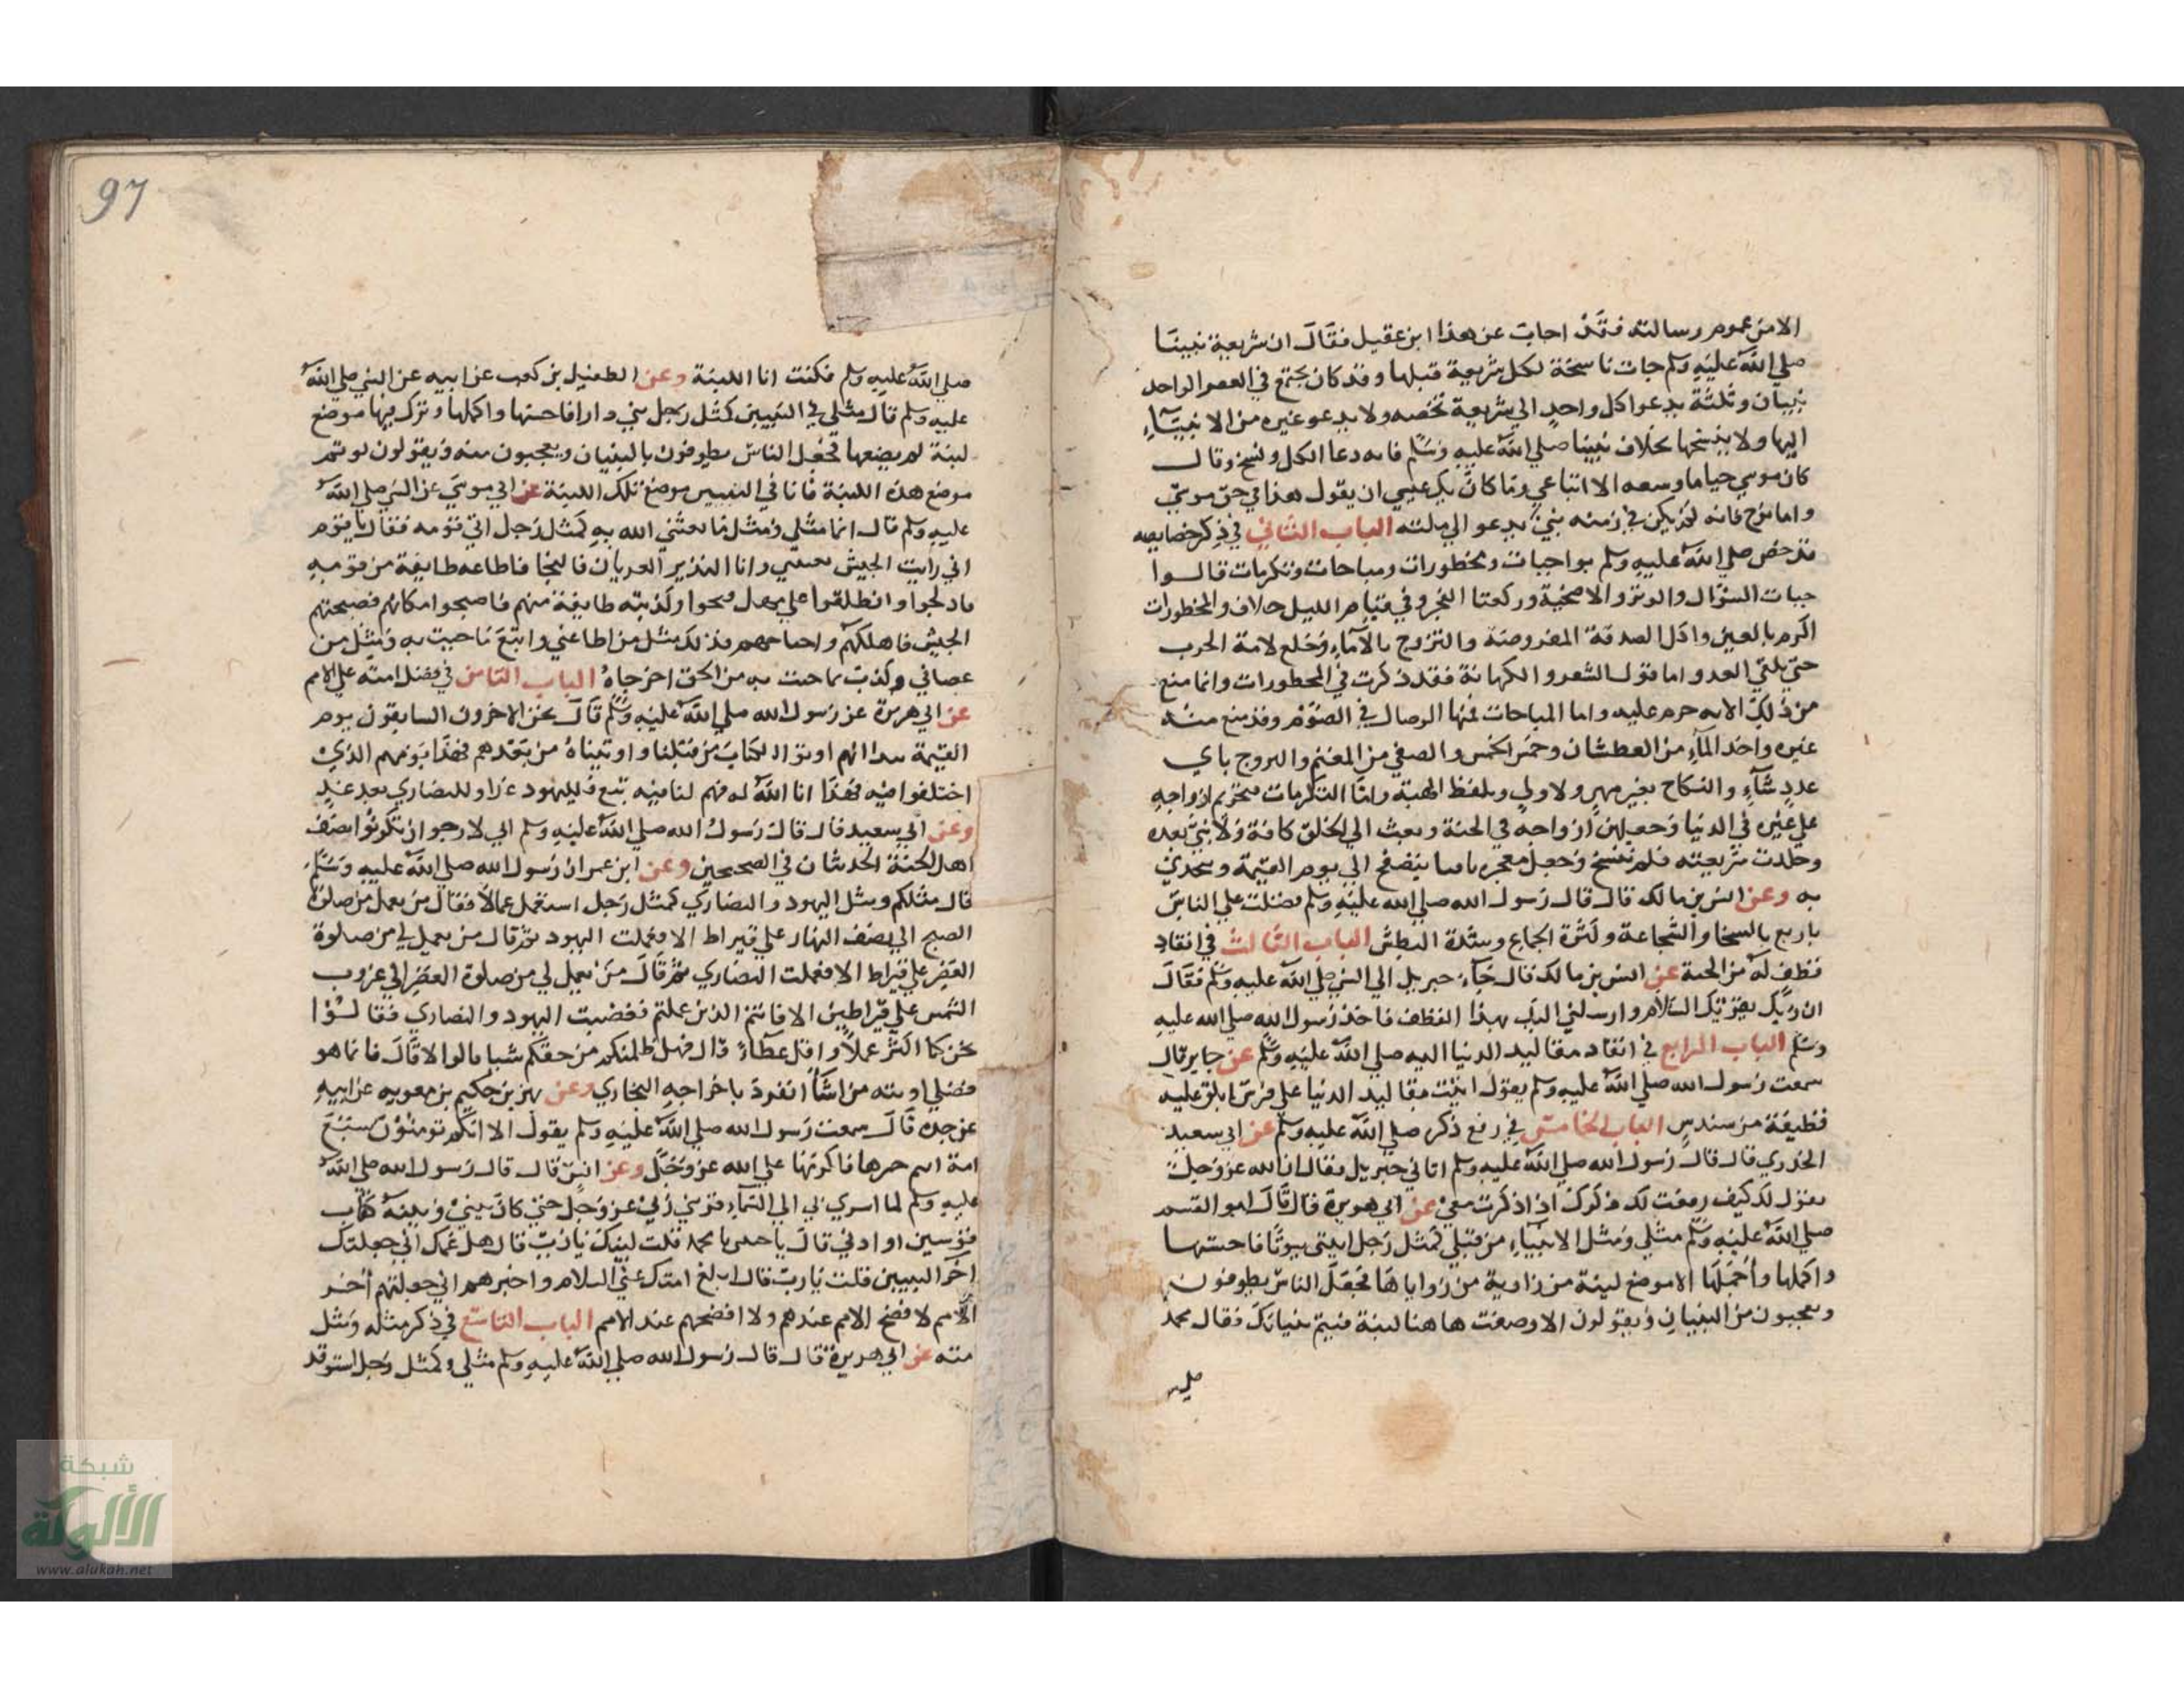 الا من عموم رسالته فقد اجاب عن هذا ابن عقيل فقال ان شريعة نبينا
صلي الله عليه وسلم جات ناسخة لكل شريعة قبلها وقد كان يجتمع في العصر الواحد
نبيان وثلثة يدعوا كل واحد الي شريعة تخصه ولا يدعو غيره من الانبياء
اليها ولا ينسخها بخلاف نبينا صلي الله عليه وسلم فانه دعا الكل ونسخ وقال
كان موسي حيا ما وسعه الا اتباعي وما كان يكن عيسي ان يقول هذا في حق موسي
واما نوح فانه لم يكن في زمنه نبي يدعو الي ملته الباب الثاني في ذكر خصايصه
قد خص صلي الله عليه وسلم بواجبات ومحظورات ومباحات وتكرمات قالوا
جبات السواك والوتر والاضحية وركعتا الفجر وفي قيام الليل خلاف والمحظورات
الرمز بالعين واكل الصدقة المفروضة والتزوج بالاماء وخلع لامة الحرب
حتي يلقي العدو اما قول الشعر والكهانة فقد ذكرت في المحظورات وانما منع
من ذلك لانه حرم عليه واما المباحات فمنها الوصال في الصوم وقد منع منه
غيره واخذ الماء من العطشان وخمس الخمس والصفي من المغنم والتزوج باي
عدد شاء والنكاح بغير مهر ولا ولي وبلفظ الهبة واما التكرمات فتحريم ازواجه
علي غيره في الدنيا وجعلهن ازواجه في الجنة وبعث الي الخلق كافة ولا نبي بعده
وخلدت شريعته فلم تنسخ وجعل معجزه باقيا يتصفح الي يوم القيمة ويتحدي
به وعن انس بن مالك قال قال رسول الله صلي الله عليه وسلم فضلت علي الناس
باربع بالسخا والشجاعة وكثرة الجماع وشدة البطش الباب الثالث في انفاذ
قطف له من الجنة عن انس بن مالك قال جاء جبريل الي النبي صلي الله عليه وسلم فقال
ان ربك يقريك السلام وارسلني اليك بهذا القطف فاخذ رسول الله صلي الله عليه
وسلم الباب الرابع في انفاد مقاليد الدنيا اليه صلي الله عليه وسلم عن جابر قال
سمعت رسول الله صلي الله عليه وسلم يقول اتيت مقاليد الدنيا علي فرس ابلق عليه
قطيفة من سندس الباب الخامس في رفع ذكره صلي الله عليه وسلم عن ابي سعيد
الخدري قال قال رسول الله صلي الله عليه وسلم اتاني جبريل فقال ان الله عز وجل
يقول لك كيف رفعت لك ذكرك اذا ذكرت معي عن ابي هريرة قال قال ابو القسم
صلي الله عليه وسلم مثلي ومثل الانبياء من قبلي كمثل رجل ابتني بيوتا فاحسنها
واكملها واجملها الا موضع لبنة من زاوية من زواياها فجعل الناس يطوفون
ويعجبون من البنيان ويقولون الا وضعت هاهنا لبنة فيتم بنيانك فقال محمد
صلي
97
صلي الله عليه وسلم فكنت انا اللبنة وعن الطفيل بن كعب عن ابيه عن النبي صلي الله
عليه وسلم قال مثلي في النبيين كمثل رجل بني دارا فاحسنها واكملها وترك فيها موضع
لبنة لم يضعها فجعل الناس يطوفون بالبنيان ويعجبون منه ويقولون لو تم
موضع هذه اللبنة فانا في النبيين موضع تلك اللبنة عن ابي موسي عن النبي صلي الله
عليه وسلم قال انما مثلي ومثل ما بعثني الله به كمثل رجل اتي قومه فقال يا قوم
اني رايت الجيش بعيني وانا النذير العريان فالنجا فاطاعه طايفة من قومه
فادلجوا وانطلقوا علي مهل فنجوا وكذبته طايفة منهم فاصبحوا مكانهم فصبحتهم
الجيش فاهلكهم واجتاحهم فذلك مثل من اطاعني واتبع ما جيت به ومثل من
عصاني وكذب بما جيت به من الحق اخرجاه الباب الثامن في فضل امته علي الامم
عن ابي هريرة عن رسول الله صلي الله عليه وسلم قال نحن الاخرون السابقون يوم
القيمة بيد انهم اوتوا الكتاب من قبلنا واوتيناه من بعدهم فهذا يومهم الذي
اختلفوا فيه فهذا انا الله له فهم لنا فيه تبع فلليهود غدا وللنصاري بعد غد
وعن ابي سعيد قال قال رسول الله صلي الله عليه وسلم اني لارجو ان تكونوا نصف
اهل الجنة الحديثان في الصحيحين وعن ابن عمر ان رسول الله صلي الله عليه وسلم
قال مثلكم ومثل اليهود والنصاري كمثل رجل استعمل عمالا فقال من يعمل من صلوة
الصبح الي نصف النهار علي قيراط الا فعملت اليهود ثم قال من يعمل لي من صلوة
العصر علي قيراط الا فعملت النصاري ثم قال من يعمل لي من صلوة العصر الي غروب
الشمس علي قيراطين الا فانتم الذين عملتم فغضبت اليهود والنصاري فقالوا
نحن كنا اكثر عملا واقل عطاء قال فهل ظلمتكم من حقكم شيا قالوا لا قال فانما هو
فضلي اوتيه من اشا انفرد باخراجه البخاري وعن بهز بن حكيم بن معويه عن ابيه
عن جده قال سمعت رسول الله صلي الله عليه وسلم يقول الا انكم توفون سبع
امة انتم خيرها واكرمها علي الله عز وجل وعن انس قال قال رسول الله صلي الله
عليه وسلم لما اسري بي الي السماء قربني ربي عز وجل حتي كان بيني وبينه كقاب
قوسين او ادني قال يا حبيبي يا محمد قلت لبيك يا رب قال هل غمك اني جعلتك
اخر النبيين قلت يا رب قال ابلغ امتك عني السلام واخبرهم اني جعلتهم اخر
الامم لا فضح الامم عندهم ولا افضحهم عند الامم الباب التاسع في ذكر مثله ومثل
مته عن ابي هريرة قال قال رسول الله صلي الله عليه وسلم مثلي وكمثل رجل استوقد
شبكة
الألوكة
www.alukah.net